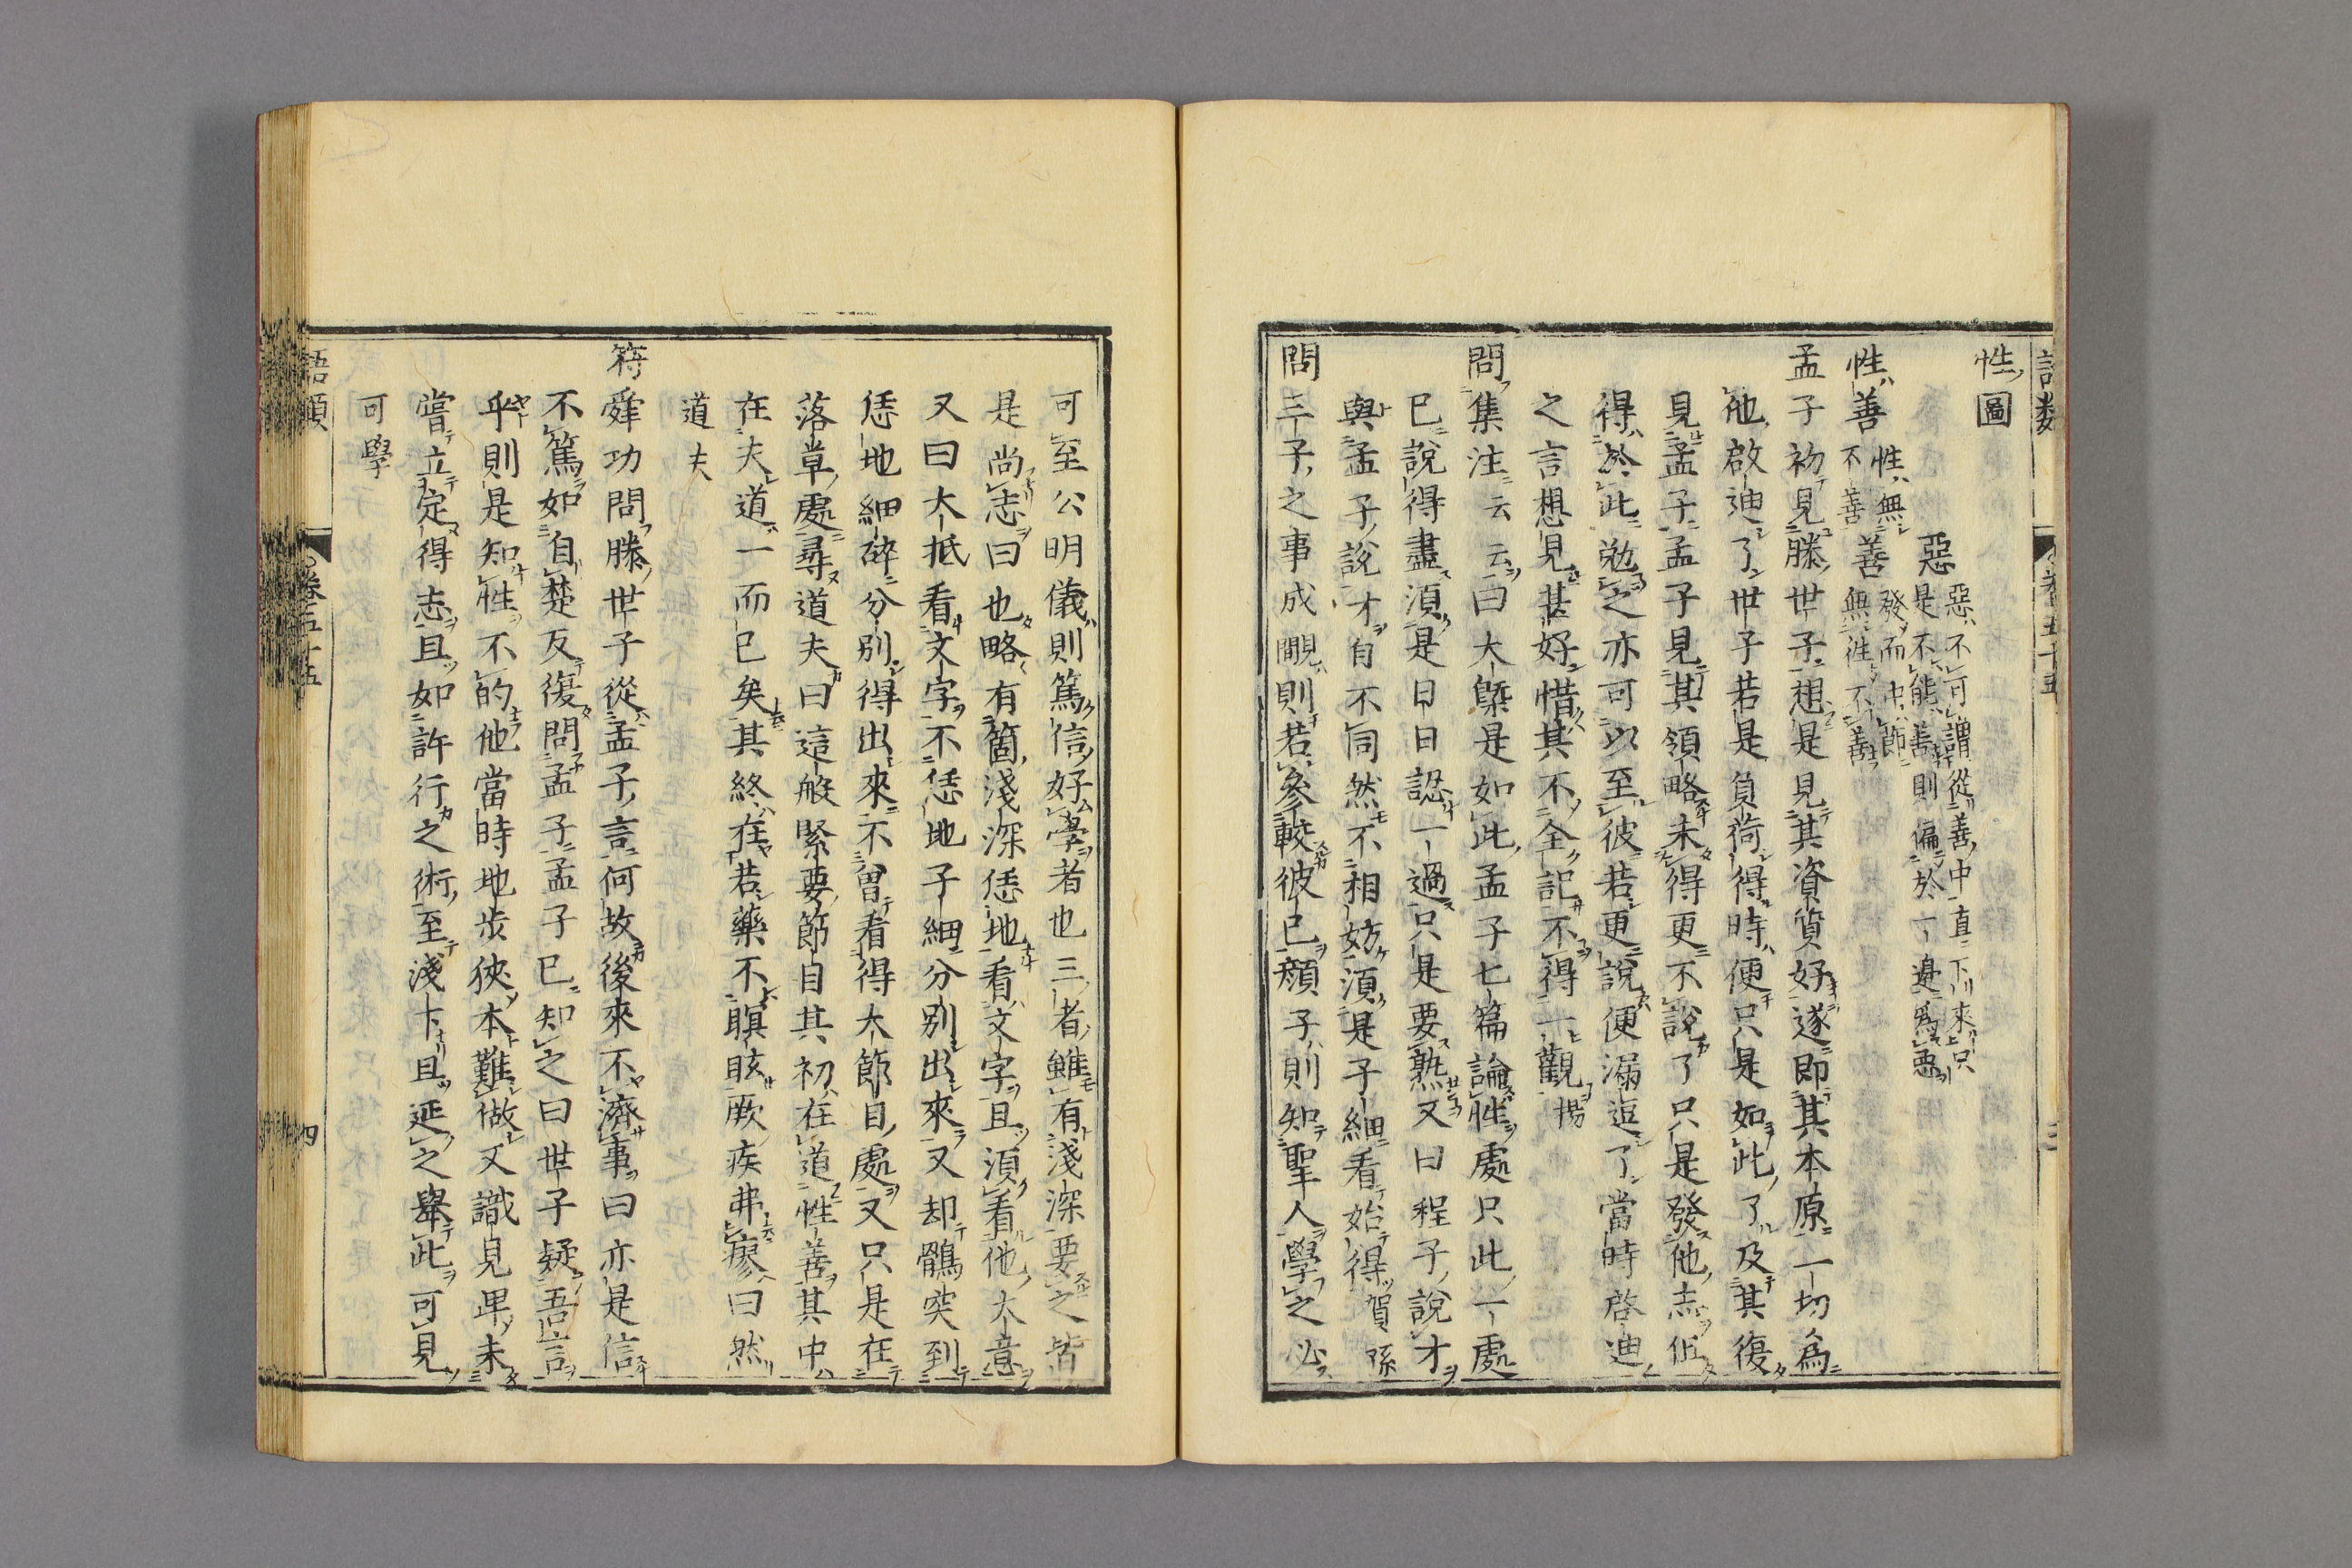 語類 卷五十五 三
性圖
惡 惡不可謂從善中直下來只
是不能善則偏於一邊為惡
性善 性無 善 發而中節
不善 無往不善
孟子初見滕世子想是見其資質好遂即其本原一切為
他啟迪了世子若是負荷得時便只是如此了及其復
見孟子孟子見其領略未得更不說了只是發他志但
得於此勉之亦可以至彼若更說便漏逗了當時啓迪
之言想見甚好惜其不全記不得一觀 揚
問集注云云曰大槩是如此孟子七篇論性處只此一處
已說得盡須是日日認一過只是要熟又曰程子說才
與孟子說才自不同然不相妨須是子細看始得 賀孫
問三子之事成覸則若參較彼己顏子則知聖人學之必
可至公明儀則篤信好學者也三者雖有淺深要之皆
是尚志曰也略有箇淺深恁地看文字且須看他大意
又曰大抵看文字不恁地子細分別出來又却鶻突到
恁地細碎分別得出來不曾看得大節目處又只是在
落草處尋道夫曰這般緊要節目其初在道性善其中
在夫道一而已矣其終在若藥不瞑眩厥疾弗瘳曰然
道夫
符舜功問滕世子從孟子言何故後來不濟事曰亦是信
不篤如自楚反復問孟子孟子已知之曰世子疑吾言
乎則是知性不的他當時地步狹本難做又識見卑未
嘗立定得志且如許行之術至淺卞且延之舉此可見
可學
語類 卷五十五 四